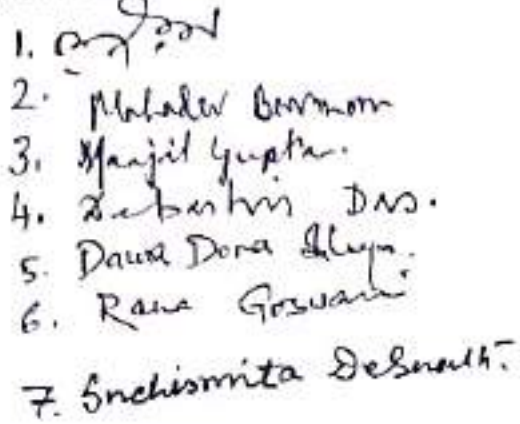 1.
2. Mahadev Barman
3. Manjil Gupta.
4. Debashis Das.
5. Dawa Dona
6. Rana Goswami
7. Suchismita Debnath.